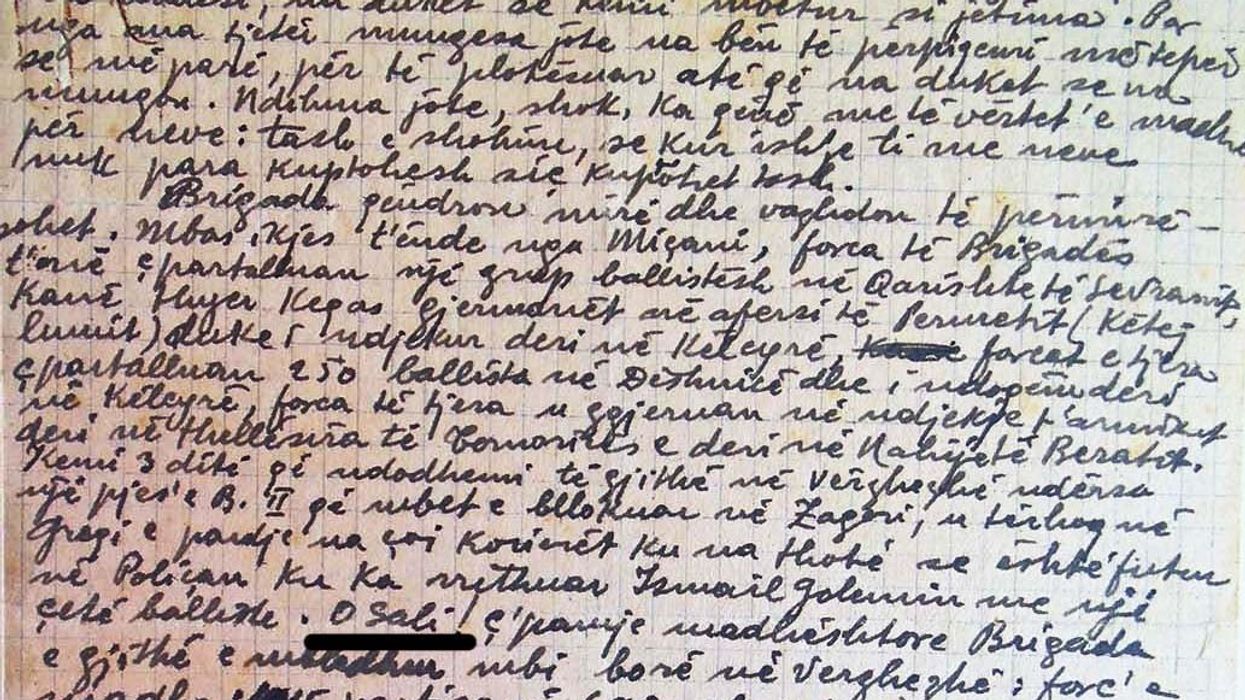 na duket se kemi mbetur si jetima. Por
nga ana tjetër mungesa jote na bën të përpiqemi më tepër
se më parë, për të plotësuar atë që na duket se na
mungon. Ndihma jote, shok, ka qenë me të vërtet' e madhe
për neve: tash e shohim, se kur ishe ti me neve
nuk para kuptohesh siç kuptohet tash.
Brigada qëndron mirë dhe vazhdon të përmirë-
sohet. Mbas ikjes t'ënde nga Miçani, forca të Brigadës
t'onë çpartalluan një grup ballistësh në Qarishtë të
Kanë thyer Keqas gjermanët në afersi të Permetit (Këtej
lumit) duke i ndjekur deri në Këlcyrë, forcat e tjera
çpartalluan 250 ballista në Dëshnicë dhe i ndoqën deri
në Këlcyrë, forca të tjera u zgjeruan në ndjekje t'armikut
deri në thellësira të Tomoricës e deri në Nahijetë Beratit.
Kemi 3 ditë që ndodhemi të gjithë në Vërgheghë ndërsa
një pjes'e B. II që mbet e bllokuar në Zagori, u tërhoq në
Greqi e pardje na çoi korierët ku na thotë se është futur
në Poliçan ku ka rrethuar Ismail Golemin me një
çetë balliste. O Sali! ç'pamje madhështore Brigada
e gjithë e mbledhur mbi borë në Vergheghë: forc' e